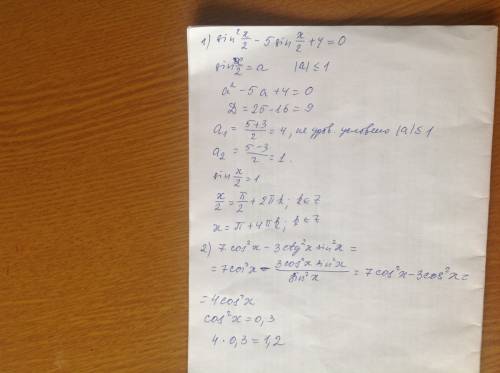 1) sin² x/2 - 5 sin x/2 + 4 = 0
sin x/2 = a |a| ≤ 1
a² - 5a + 4 = 0
D = 25 - 16 = 9
a₁ = (5+3)/2 = 4, не удов. условию |a| ≤ 1
a₂ = (5-3)/2 = 1.
sin x/2 = 1
x/2 = π/2 + 2πk; k ∈ Z
x = π + 4πk; k ∈ Z
2) 7cos²x - 3ctg²x sin²x =
= 7cos²x - (3cos²x sin²x)/(sin²x) = 7cos²x - 3cos²x =
= 4cos²x
cos²x = 0,3
4 · 0,3 = 1,2